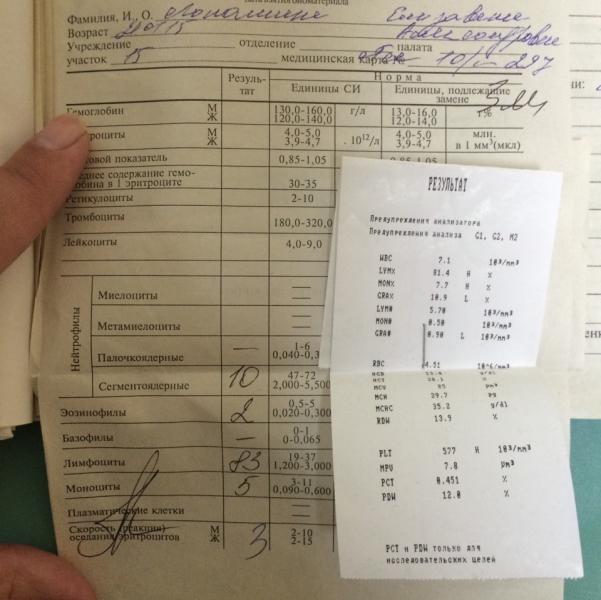 Фамилия, И., О.
Возраст
Учреждение отделение палата
участок 15 медицинская карта №
Резуль-
тат
Норма
Единицы СИ
Единицы, подлежащие
замене
Гемоглобин М 130,0-160,0 г/л 13,0-16,0 г%
Ж 120,0-140,0 12,0-14,0
М 4,0-5,0 . 10¹²/л 4,0-5,0 млн.
Ж 3,9-4,7 3,9-4,7 в 1 мм³(мкл)
показатель 0,85-1,05 0,85-1,05
содержание гемо-
в 1 эритроците 30-35
Ретикулоциты 2-10
Тромбоциты 180,0-320,0
Лейкоциты 4,0-9,0
Нейтрофилы
Миелоциты —
Метамиелоциты —
Палочкоядерные 1-6
0,040-0,3
Сегментоядерные 10 47-72
2,000-5,500
Эозинофилы 2 0,5-5
0,020-0,300
Базофилы — 0-1
0-0,065
Лимфоциты 83 19-37
1,200-3,000
Моноциты 5 3-11
0,090-0,600
Плазматические клетки —
Скорость (реакция) М 3 2-10
оседания эритроцитов Ж 2-15
РЕЗУЛЬТАТ
Предупреждения анализатора
Предупреждения анализа G1, G2, M2
WBC 7.1 10³/mm³
LYM% 81.4 H %
MON% 7.7 H %
GRA% 10.9 L %
LYM# 5.70 10³/mm³
MON# 0.50 10³/mm³
GRA# 0.90 L 10³/mm³
RBC 4.51 10^6/mm³
HGB g/dl
HCT %
MCV µm³
MCH 29.7 pg
MCHC 35.2 g/dl
RDW 13.9 %
PLT 577 H 10³/mm³
MPV 7.8 µm³
PCT 0.451 %
PDW 12.0 %
PCT и PDW только для
исследовательских целей